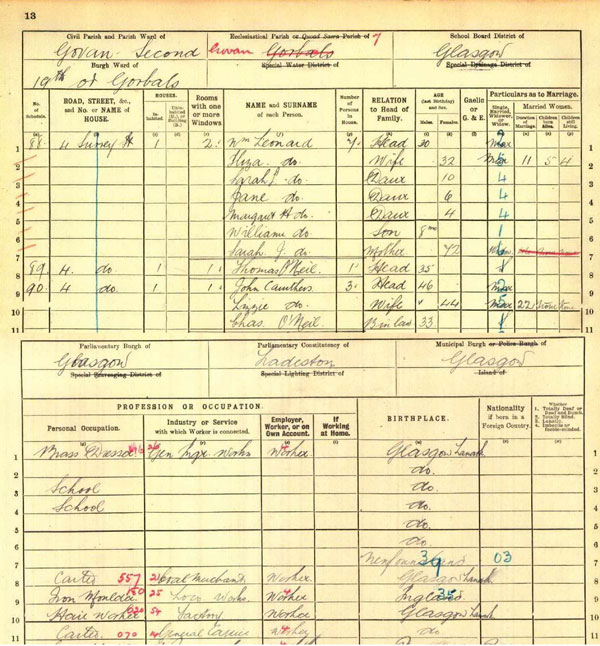 13
Civil Parish and Parish Ward of
Ecclesiastical Parish or Quoad Sacra Parish of 7
School Board District of
Govan - Second
Govan Gorbals
Glasgow
Burgh Ward of
Special Water District of
Special Drainage District of
19th or Gorbals
No. of Schedule.
ROAD, STREET, &c., and No. or NAME of HOUSE.
HOUSES.
Rooms with one or more Windows
NAME and SURNAME of each Person.
Number of Persons in House.
RELATION to Head of Family.
AGE (last Birthday) and Sex.
Gaelic or G. & E.
Particulars as to Marriage.
Inhabited.
Males. Females.
Single, Married, Widower, or Widow.
Married Women.
Duration of Marriage.
Children born Alive.
Children still Living.
1 88 4 Surrey St 1 2 Wm Leonard 7 Head 30
2 Eliza do. Wife 32 Mar 11 5 4
3 Sarah do. Daur 10
4 Jane do. Daur 6
5 Margaret do. Daur 4
William do. Son 8 mo
6 Sarah J do. Mother 72
7 89 4 do 1 1 Thomas O'Neil 1 Head 35
8 90 4 do 1 1 John Caruthers 3 Head 46
9 Lizzie do. Wife 44 Mar 22
10 Chas. O'Neil B in law 33
11
Parliamentary Burgh of
Parliamentary Constituency of
Municipal Burgh or Police Burgh of
Glasgow
Glasgow
Special Scavenging District of
Special Lighting District of
Island of
PROFESSION OR OCCUPATION.
BIRTHPLACE.
Nationality if born in a Foreign Country.
Whether
1. Totally Deaf or Deaf and Dumb.
2. Totally Blind.
3. Lunatic.
4. Imbecile or feeble-minded.
Personal Occupation.
Industry or Service with which Worker is connected.
Employer, Worker, or on Own Account.
If Working at Home.
1 Brass Dresser Worker Glasgow Lanark
2 do.
3 School do.
4 School do.
5 do.
6 do.
7 39 03
8 Carter 557 Coal Merchant Worker Glasgow Lanark
9 Iron Moulder 25 Loco Works Worker England
10 54 Factory Worker Glasgow Lanark
11 Carter 070 General Worker do